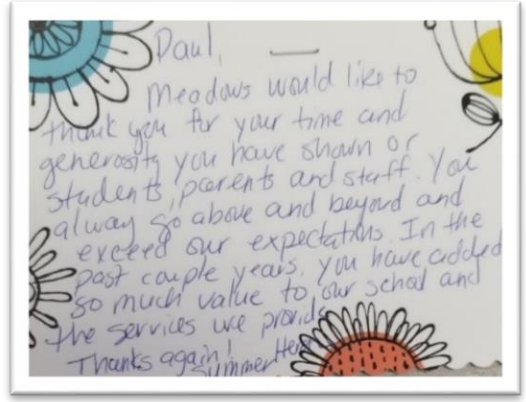 Paul,
Meadows would like to
thank you for your time and
generosity you have shown or
students, parents and staff. You
alway go above and beyond and
exceed our expectations. In the
past couple years, you have added
so much value to our school and
the services we provide
Thanks again!
Summer